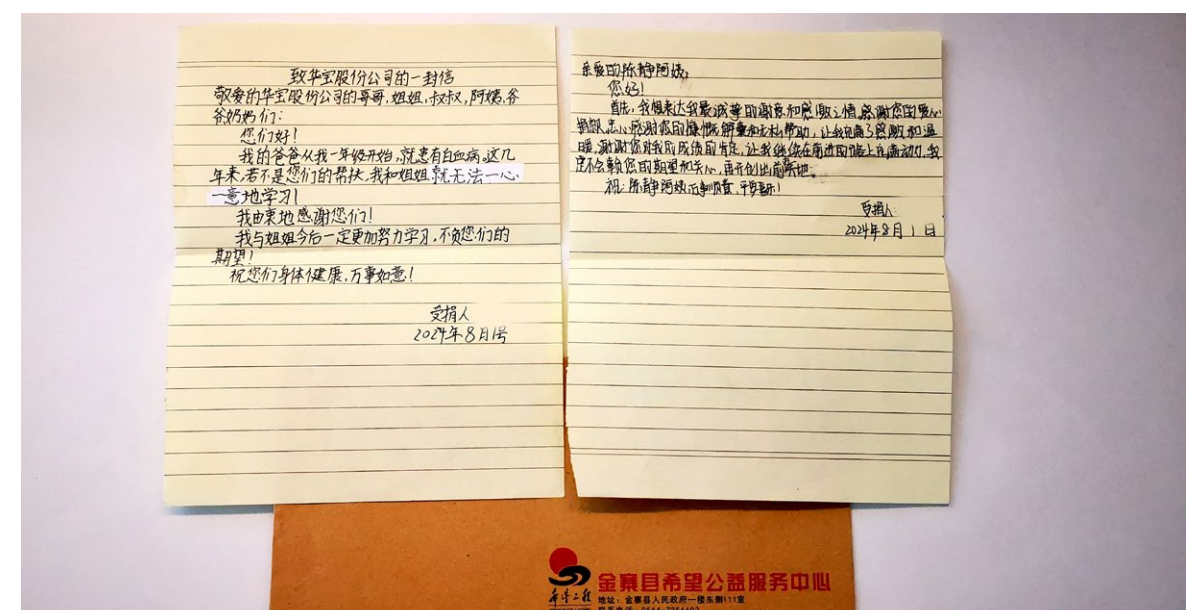 致华宝股份公司的一封信
敬爱的华宝股份公司的哥哥,姐姐,叔叔,阿姨,爷
爷奶奶们:
您们好!
我的爸爸从我一年级开始,就患有白血病,这几
年来,若不是您们的帮扶,我和姐姐就无法一心
一意地学习!
我由衷地感谢您们!
我与姐姐今后一定更加努力学习,不负您们的
期望!
祝您们身体健康,万事如意!
受捐人
2024年8月1号
亲爱的陈静阿姨,
您好!
首先,我想表达我最诚挚的谢意和感激之情,感谢您的爱心
捐款,感谢您的慷慨解囊和无私帮助,让我充满了感激和温
暖,谢谢您对我的成绩的肯定,让我继续在前进的路上充满动力,我
定不会辜负您的期望和关心,再开创出前新地。
祝:陈静阿姨万事顺意,平安喜乐!
受捐人:
2024年8月1日
希望工程
金寨县希望公益服务中心
地址:金寨县人民政府一楼东侧111室